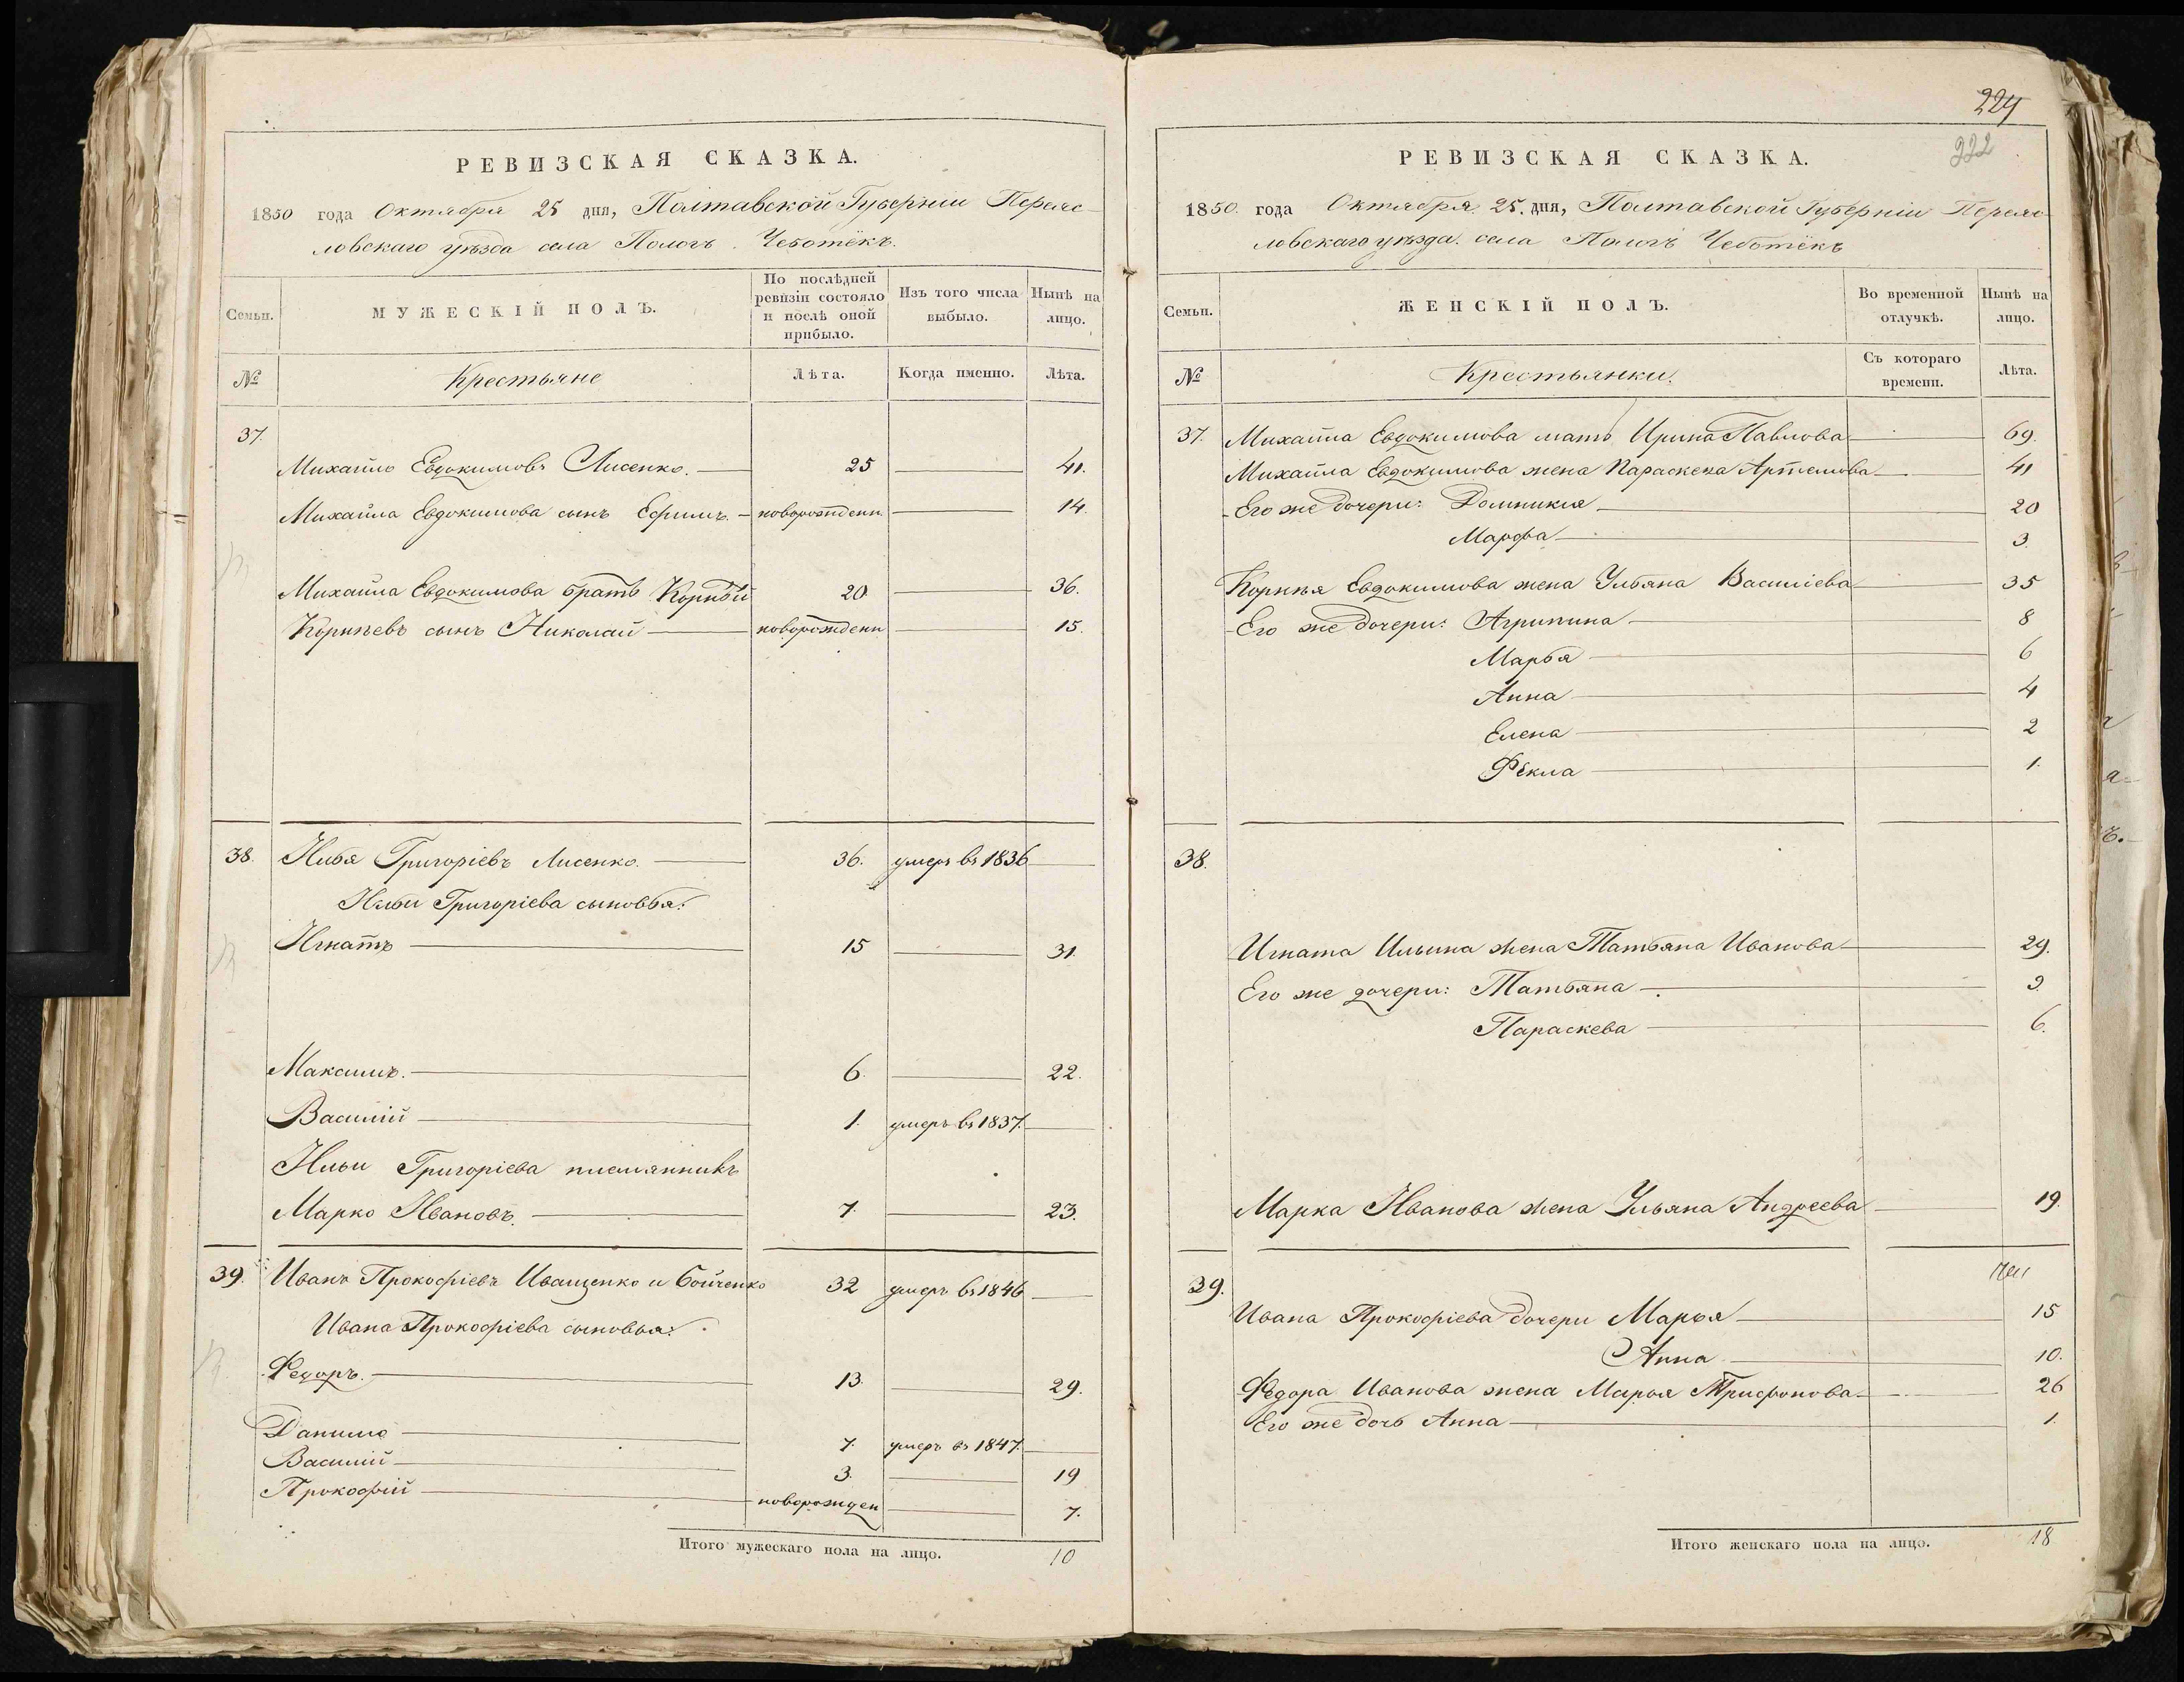 РЕВИЗСКАЯ СКАЗКА.
1850 года Октября 25 дня, Полтавской Губерніи Переяс
ловскаго уѣзда села Пологъ Чеботёкъ.
Семьи.
МУЖЕСКІЙ ПОЛЪ.
По послѣдней
ревизіи состояло
и послѣ оной
прибыло.
Изъ того числа
выбыло.
Нынѣ на
лицо.
№ Крестьяне Лѣта. Когда именно. Лѣта.
37.
Михайло Евдокимовъ Лисенко. 25 41.
Михайла Евдокимова сынъ Ефимъ. новорожденн 14.
Михайла Евдокимова братъ Корнѣй 20 36.
Корнѣевъ сынъ Николай новорожденн 15.
38. Илья Григоріевъ Лисенко. 36. умеръ въ 1836
Ильи Григоріева сыновья:
Игнатъ 15 31.
Максимъ. 6. 22.
Василій 1. умеръ въ 1837.
Ильи Григоріева племянникъ
Марко Ивановъ. 7. 23.
39. Иванъ Прокофіевъ Иващенко и Бойченко 32 умеръ въ 1846
Ивана Прокофіева сыновья:
Федоръ. 13. 29.
Данило 7. умеръ въ 1847.
Василій 3. 19
Прокофій новорожден 7.
Итого мужескаго пола на лицо. 10
224
222
РЕВИЗСКАЯ СКАЗКА.
1850. года Октября 25. дня, Полтавской Губерніи Переяс
ловскаго уѣзда. села Пологъ Чеботёкъ
Семьи.
ЖЕНСКІЙ ПОЛЪ.
Во временной
отлучкѣ.
Нынѣ на
лицо.
№ Крестьянки.
Съ котораго
времени.
Лѣта.
37. Михайла Евдокимова мать Ирина Павлова 69.
Михайла Евдокимова жена Параскева Артемова 41
Его же дочери: Домникия 20
Марфа 3.
Корнѣя Евдокимова жена Ульяна Василіева 35
Его же дочери: Агрипина 8
Марья 6
Анна 4
Елена 2
Фекла 1.
38.
Игната Ильина жена Татьяна Иванова 29.
Его же дочери: Татьяна 9.
Параскева 6.
Марка Иванова жена Ульяна Андреева 19.
39.
Ивана Прокофіева дочери Марья 15
Анна 10.
Федора Иванова жена Марья Трифонова 26
Его же дочь Анна 1.
Итого женскаго пола на лицо. 18